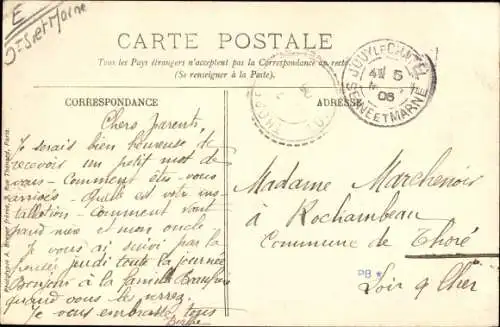 E
Set Marne
CARTE POSTALE
Tous les Pays étrangers n'acceptent pas la Correspondance au recto
(Se renseigner à la Poste).
CORRESPONDANCE
ADRESSE
JOUY LE CHATEL
5
06
SEINE ET MARNE
THORÉ
Chers parents,
Je serais bien heureuse de
recevoir un petit mot de
vous - Comment êtes-vous
arrivés - Quelle est votre ins-
tallation - Comment vont
grand mère et mon oncle
Je vous ai suivi par la
pensée jeudi toute la journée
Bonjour à la famille
quand vous les verrez.
Je vous embrasse tous
Berthe
Madame Marchenoir
à Rochambeau
Commune de Thoré
Loir & Cher
PB *